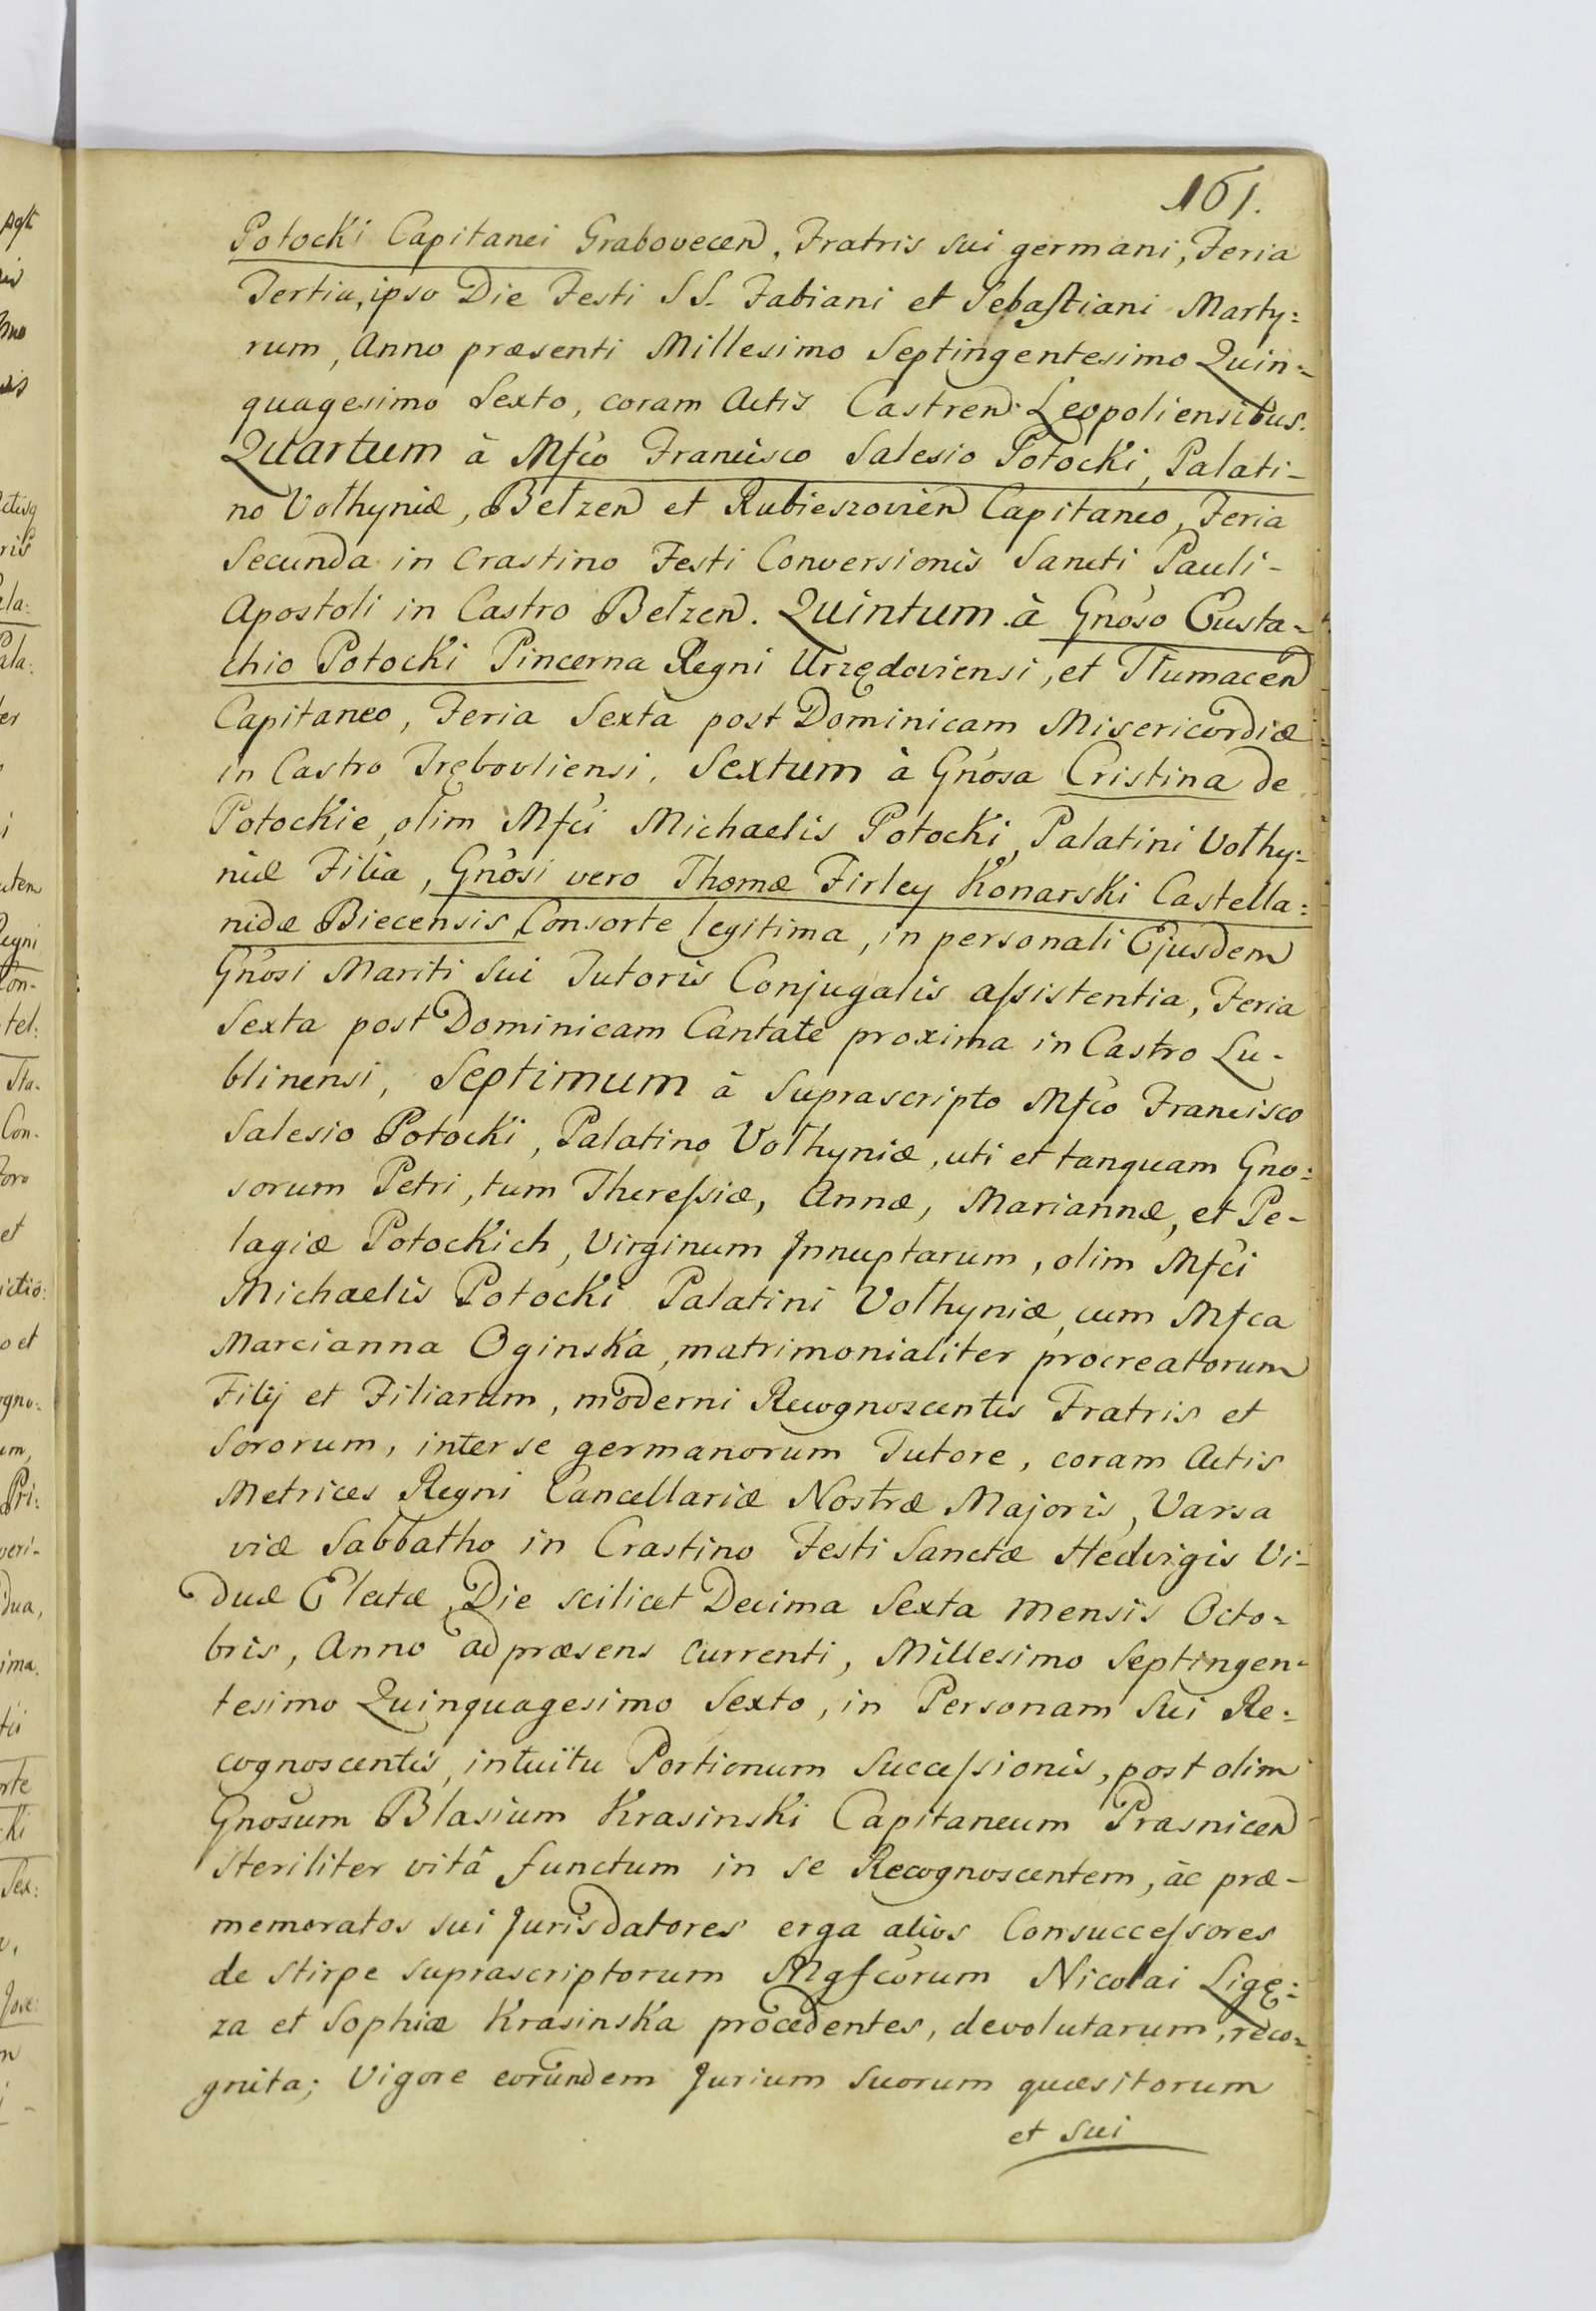 161.
Potocki Capitanei Graboveceñ, Fratris sui germani, Feria
Tertia, ipso Die Festi SS. Fabiani et Sebastiani Marty:
rum, Anno præsenti Millesimo Septingentesimo Quin=
quagesimo Sexto, coram Actis Castreñ. Leopoliensibus.
Quartum à Mfco Francisco Salesio Potocki, Palati-
no Volhyniæ, Bełzeñ et Rubieszovieñ Capitaneo, Feria
Secunda in Crastino Festi Conversionis Sancti Pauli-
Apostoli in Castro Bełzeñ. Quintum à Gnoso Eusta=
chio Potocki Pincerna Regni Urzędoviensi, et Tłumaceñ
Capitaneo, Feria Sexta post Dominicam Misericordiæ
in Castro Trębovliensi. Sextum à Gnosa Cristina de
Potockie, olim Mfci Michaelis Potocki, Palatini Volhy:
niæ Filia, Gnosi vero Thomæ Firley Konarski Castella:
nidæ Biecensis, Consorte legitima, in personali Ejusdem
Gnosi Mariti sui Tutoris Conjugalis assistentia, Feria
Sexta post Dominicam Cantate proxima in Castro Lu-
blinensi, Septimum à Suprascripto Mfco Francisco
Salesio Potocki, Palatino Volhyniæ, uti et tanquam Gno:
sorum Petri, tum Theressiæ, Annæ, Mariannæ, et Pe-
lagiæ Potockich, Virginum Innuptarum, olim Mfci
Michaelis Potocki Palatini Volhyniæ, cum Mfca
Marcianna Oginska, matrimonialiter procreatorum
Filij et Filiarum, moderni Recognoscentis Fratris et
Sororum, inter se germanorum Tutore, coram Actis
Metrices Regni Cancellariæ Nostræ Majoris, Varsa
viæ Sabbatho in Crastino Festi Sanctæ Hedvigis Vi-
duæ Electæ, Die scilicet Decima Sexta mensis Octo-
bris, Anno ad præsens currenti, Millesimo Septingen-
tesimo Quinquagesimo Sexto, in Personam Sui Re:
cognoscentis, intuitu Portionum Successionis, post olim
Gnosum Blasium Krasinski Capitaneum Prasniceñ
steriliter vitâ functum in se Recognoscentem, àc præ-
memoratos sui Jurisdatores erga alios Consuccessores
de stirpe suprascriptorum Mgfcorum Nicolai Ligę:
za et Sophiæ Krasinska procedentes, devolutarum, reco=
gnita; Vigore eorundem Jurium suorum quæsitorum
et sui